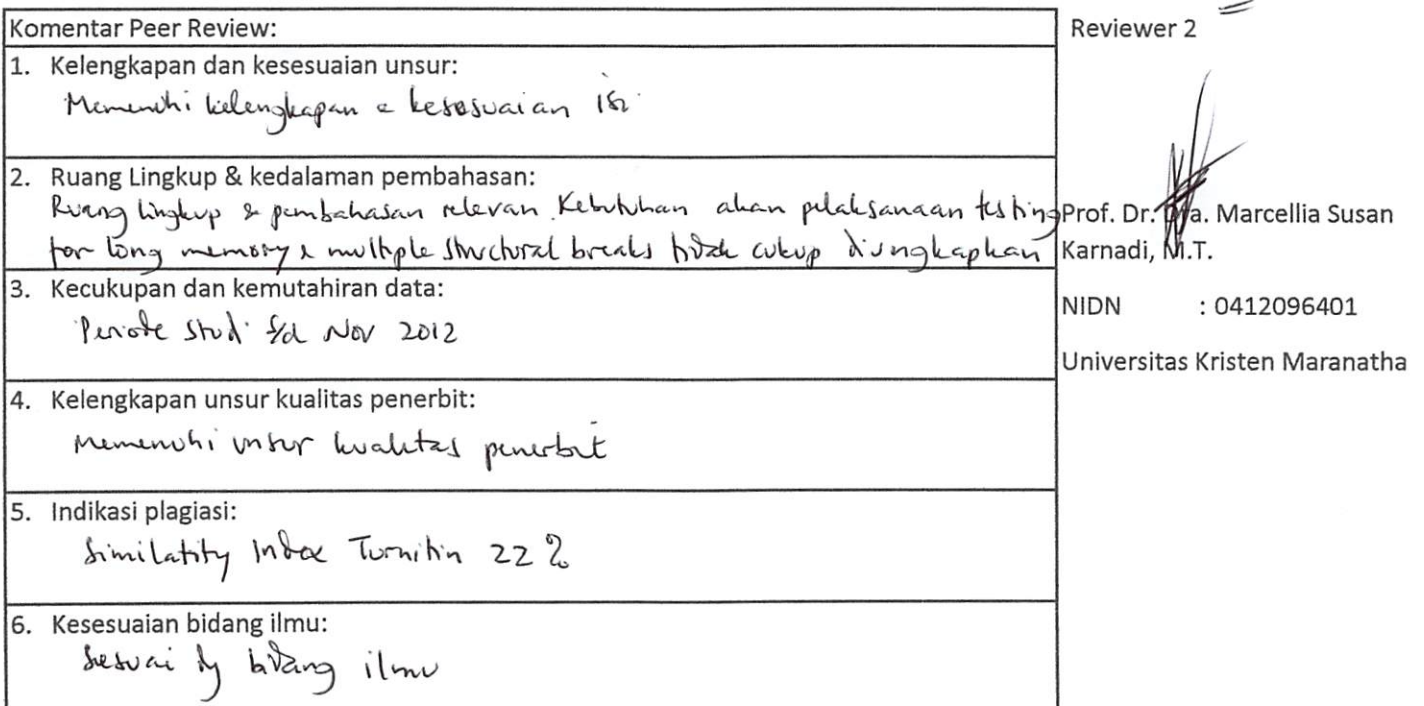 Komentar Peer Review:
1. Kelengkapan dan kesesuaian unsur:
Memenuhi kelengkapan & kesesuaian isi
2. Ruang Lingkup & kedalaman pembahasan:
Ruang lingkup & pembahasan relevan. Kebutuhan akan pelaksanaan testing
for long memory & multiple structural breaks tidak cukup diungkapkan
3. Kecukupan dan kemutahiran data:
Periode studi s/d Nov 2012
4. Kelengkapan unsur kualitas penerbit:
Memenuhi unsur kualitas penerbit
5. Indikasi plagiasi:
Similatity Index Turnitin 22 %
6. Kesesuaian bidang ilmu:
Sesuai dg bidang ilmu
Reviewer 2
Prof. Dr. Dra. Marcellia Susan
Karnadi, M.T.
NIDN : 0412096401
Universitas Kristen Maranatha